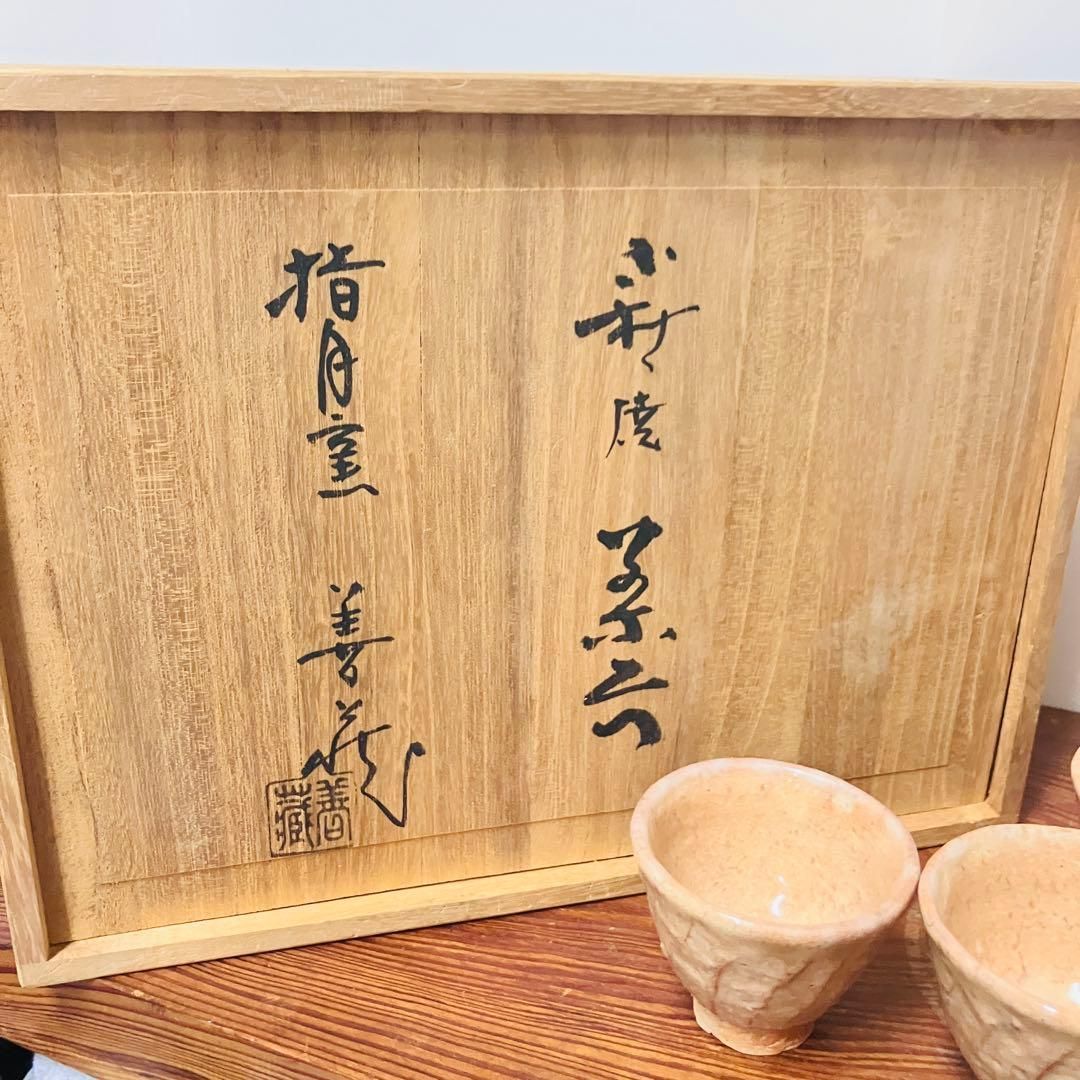 萩焼 茶器
指月窯 善蔵
善藏